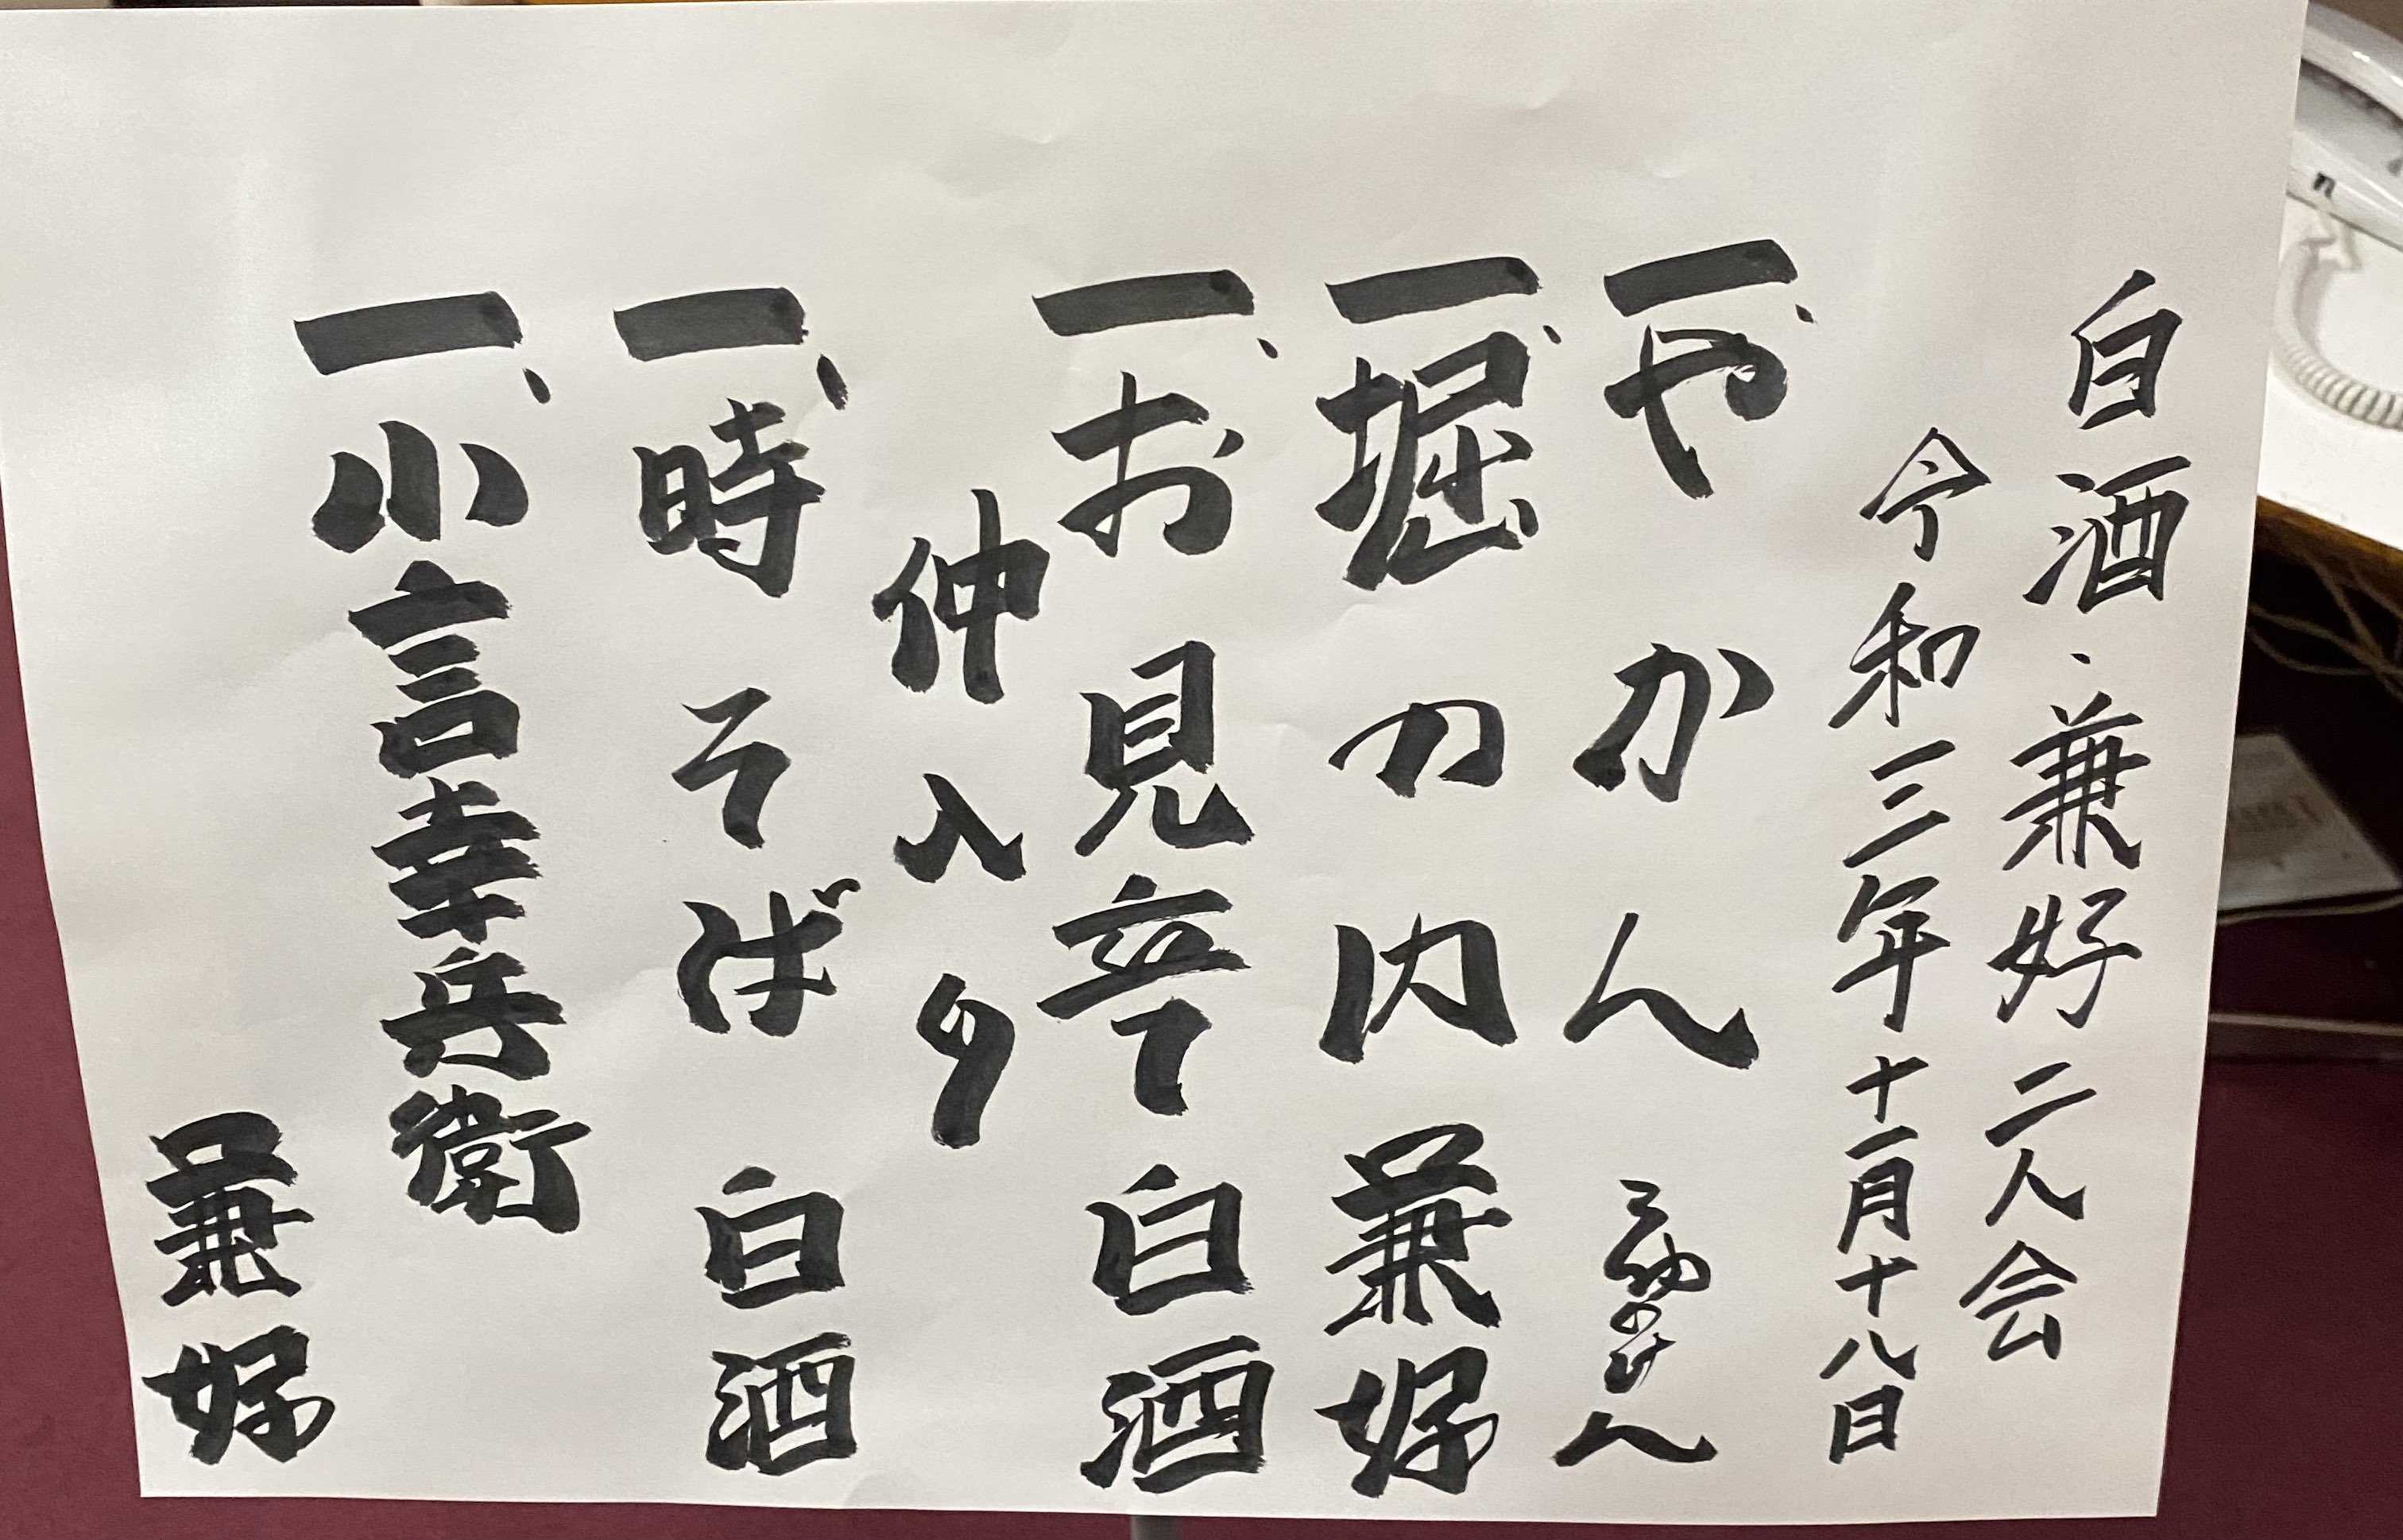 白酒・兼好 二人会
令和三年十一月十八日
一、やかん
一、堀の内 兼好
一、お見立て 白酒
仲入り
一、時そば 白酒
一、小言幸兵衛
兼好